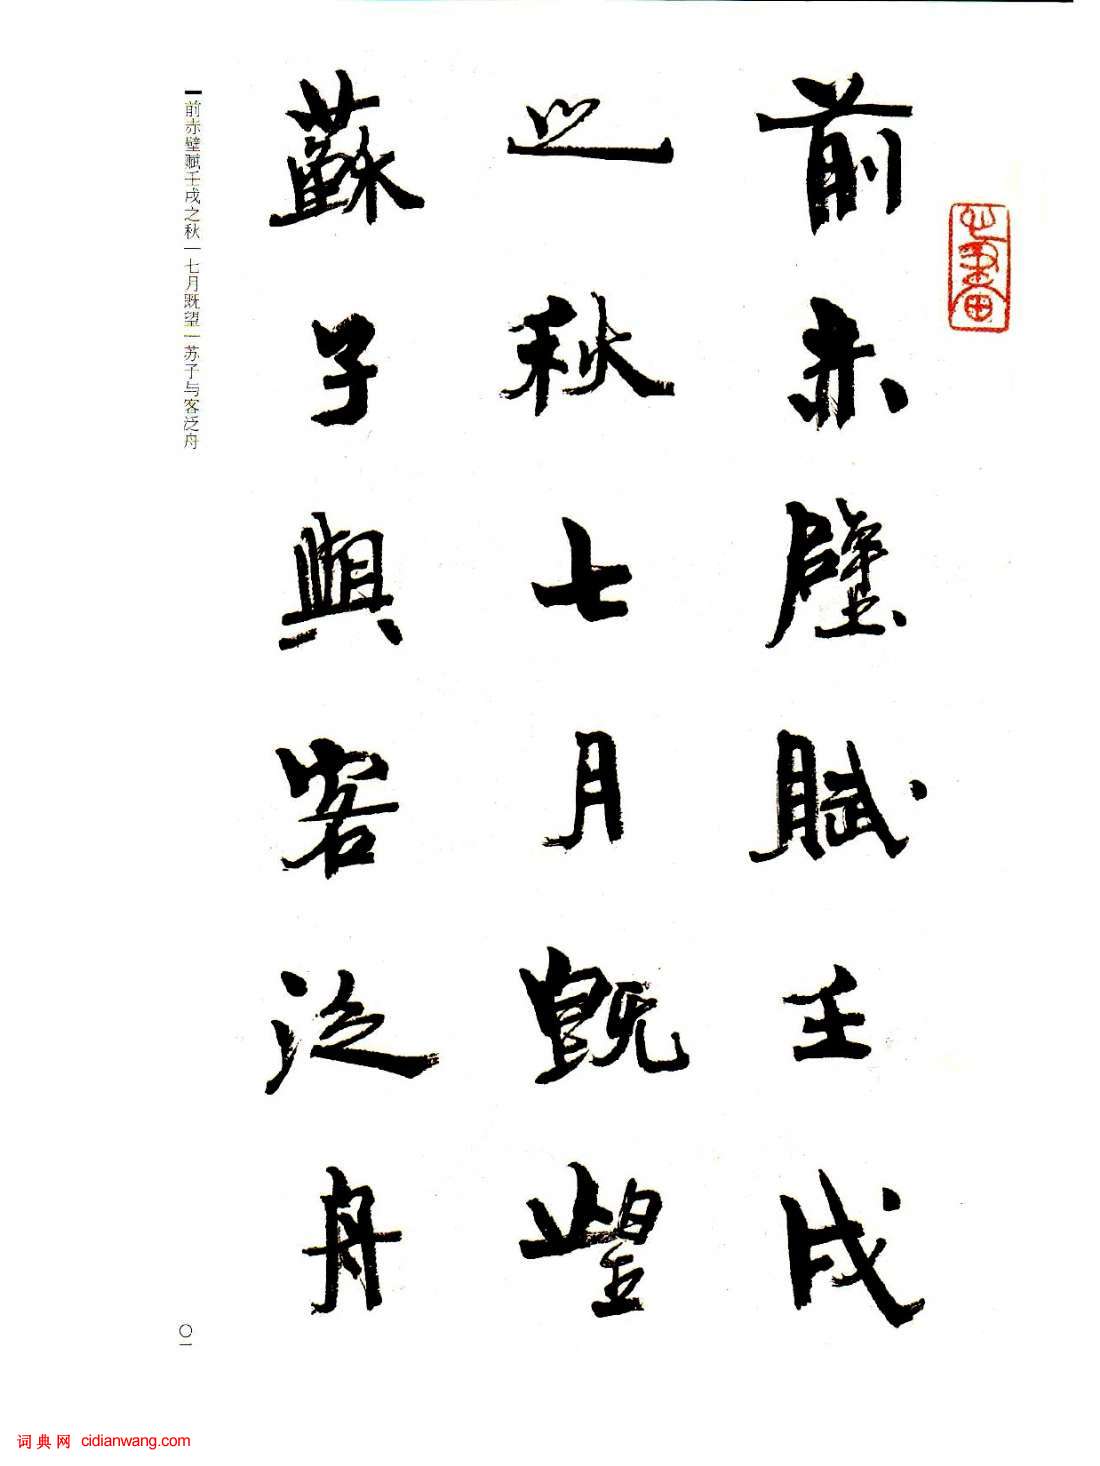 前赤壁賦壬戌
之秋七月既望
蘇子與客泛舟
前赤壁赋壬戌之秋|七月既望|苏子与客泛舟
〇一
词典网 cidianwang.com